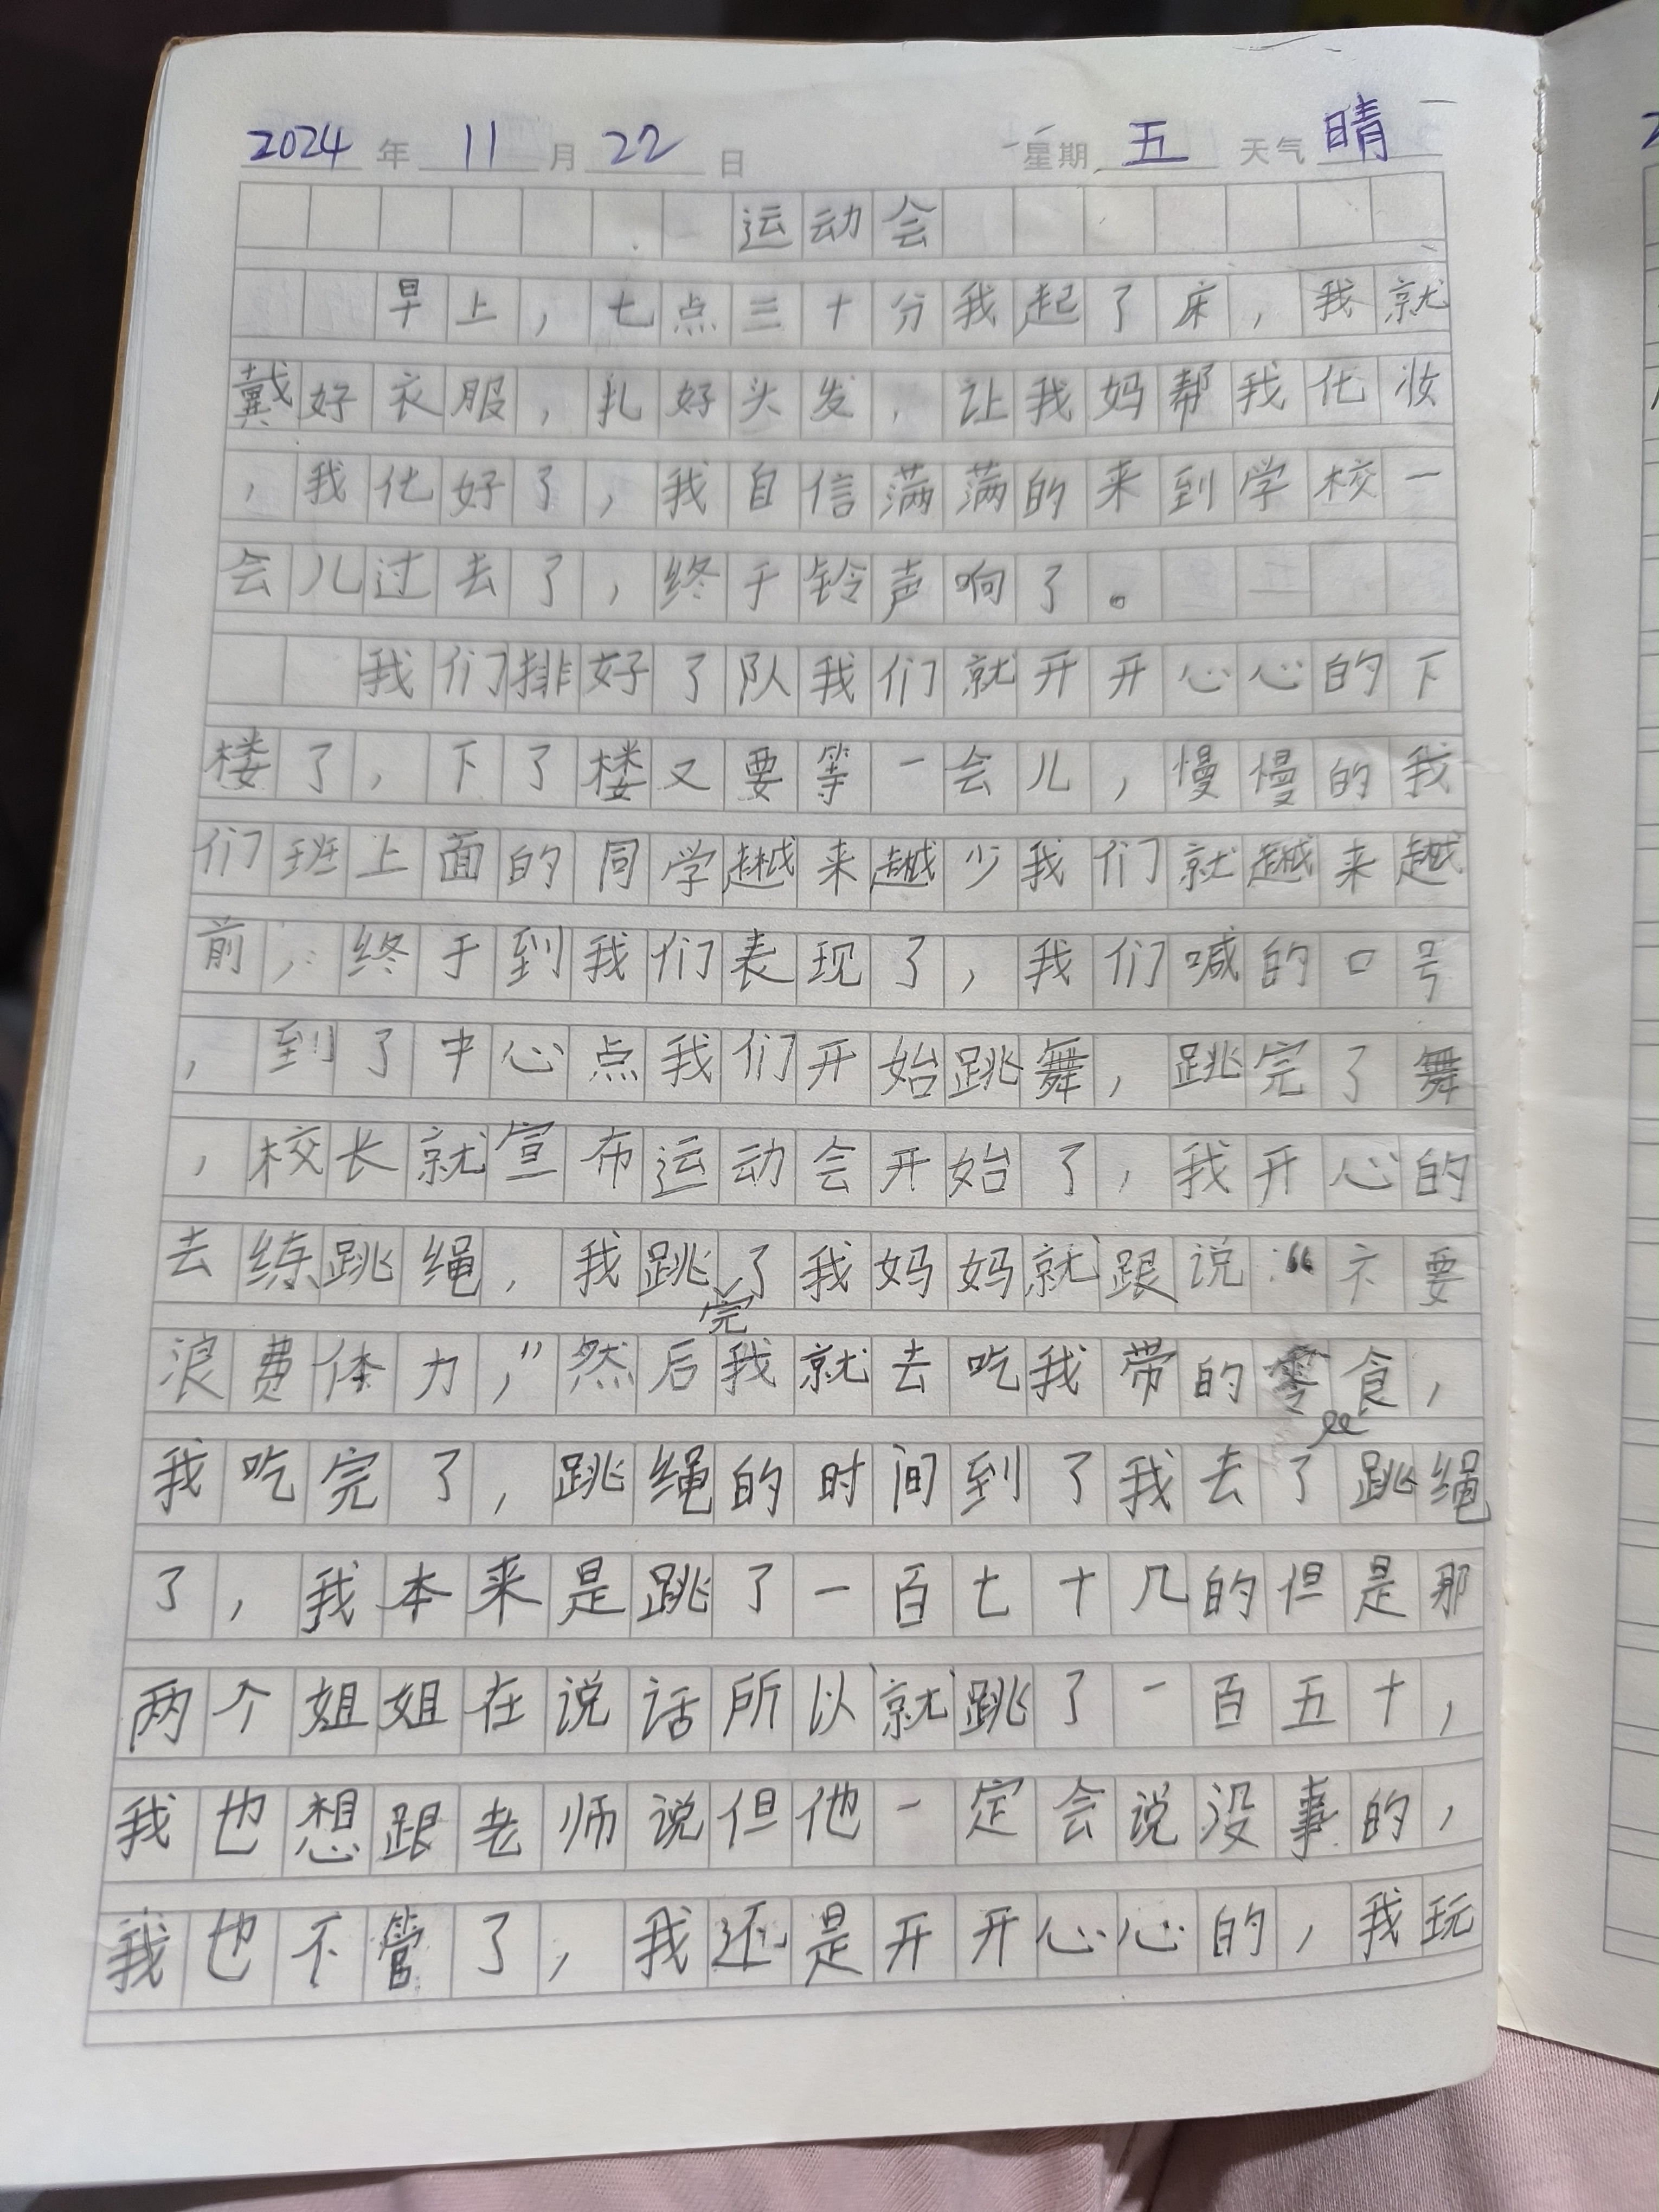 2024 年 11 月 22 日 星期 五 天气 晴
运动会
早上，七点三十分我起了床，我就
戴好衣服，扎好头发，让我妈帮我化妆
，我化好了，我自信满满的来到学校一
会儿过去了，终于铃声响了。
我们排好了队我们就开开心心的下
楼了，下了楼又要等一会儿，慢慢的我
们班上面的同学越来越少我们就越来越
前，终于到我们表现了，我们喊的口号
，到了中心点我们开始跳舞，跳完了舞
，校长就宣布运动会开始了，我开心的
去练跳绳，我跳完了我妈妈就跟说“不要
浪费体力，”然后我就去吃我带的零食，
我吃完了，跳绳的时间到了我去了跳绳
了，我本来是跳了一百七十几的但是那
两个姐姐在说话所以就跳了一百五十，
我也想跟老师说但他一定会说没事的，
我也不管了，我还是开开心心的，我玩